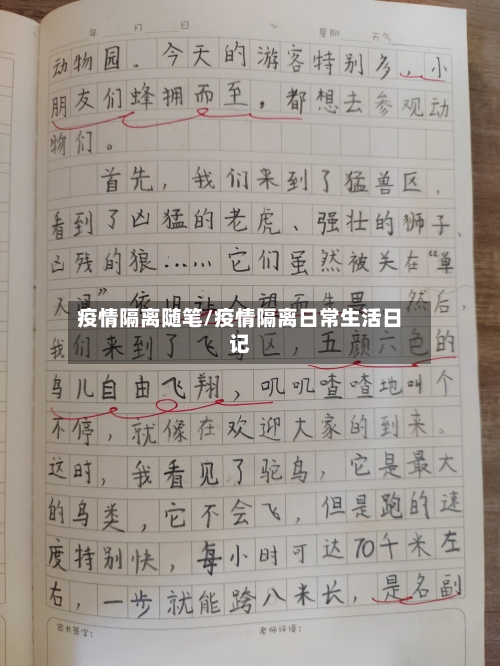 年 月 日 星期 天气
动物园。今天的游客特别多,小
朋友们蜂拥而至,都想去参观动
物们。
首先,我们来到了猛兽区,
看到了凶猛的老虎、强壮的狮子、
凶残的狼……它们虽然被关在“单
人间”依旧让人望而生畏。然后,
疫情隔离随笔/疫情隔离日常生活日
记
我们来到了飞鸟区,五颜六色的
鸟儿自由飞翔,叽叽喳喳地叫个
不停,就像在欢迎大家的到来。
这时,我看见了鸵鸟,它是最大
的鸟类,它不会飞,但是跑的速
度特别快,每小时可达70千米左
右,一步就能跨八米长,是名副
家长签字: 老师评语: